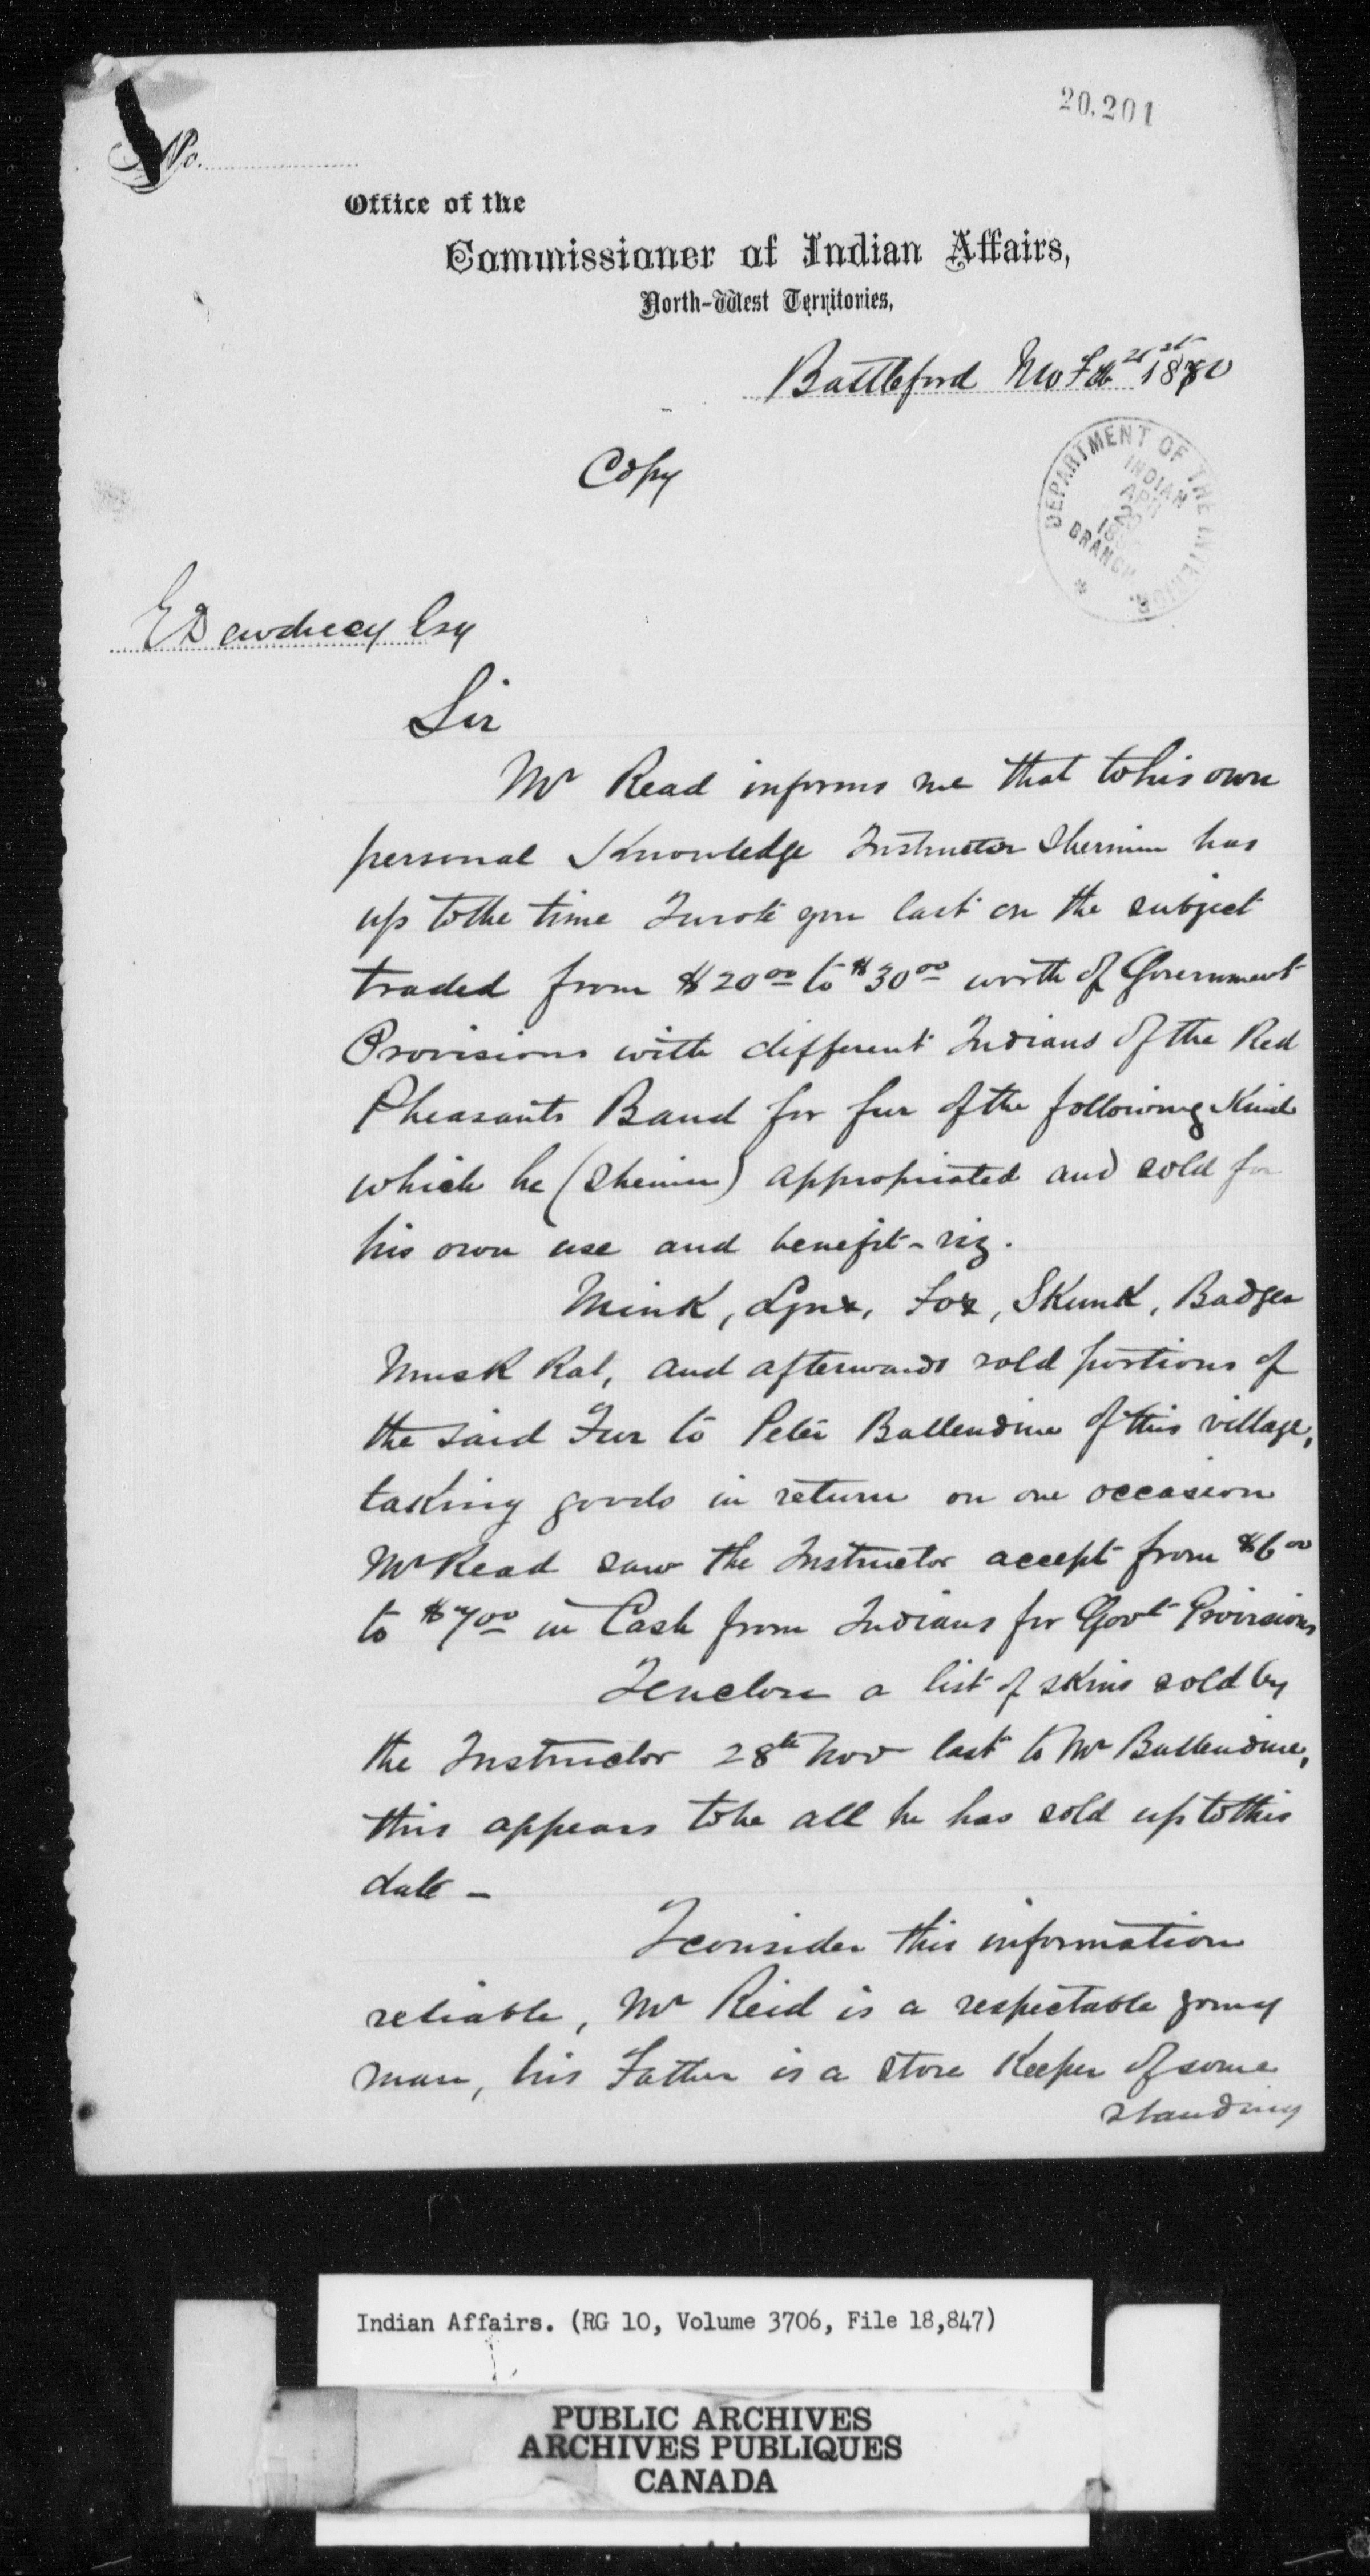 20,201
No.
Office of the
Commissioner of Indian Affairs,
North-West Territories,
Battleford NW Feb 21st 1880
Copy
DEPARTMENT OF THE INTERIOR
INDIAN
BRANCH
E Dewdney Esq
Sir
Mr Read informs me that to his own
personal Knowledge Instructor has
up to the time I wrote you last on the subject
traded from $20 00 to $30 00 worth of Government
Provisions with different Indians of the Red
Pheasants Band for fur of the following Kind
which he ( ) appropriated and sold for
his own use and benefit - viz.
Mink, Lynx, Fox, Skunk, Badger
Musk Rat, and afterwards sold portions of
the said Fur to Peter Ballendine of this village,
taking goods in return on one occasion
Mr Read saw the Instructor accept from $6 00
to $7 00 in Cash from Indians for Govt Provisions
I enclose a list of skins sold by
the Instructor 28th Nov last to Mr Ballendine,
this appears to be all he has sold up to this
date -
I consider this information
reliable, Mr Reid is a respectable young
man, his Father is a Store Keeper of some
standing
Indian Affairs. (RG 10, Volume 3706, File 18,847)
PUBLIC ARCHIVES
ARCHIVES PUBLIQUES
CANADA